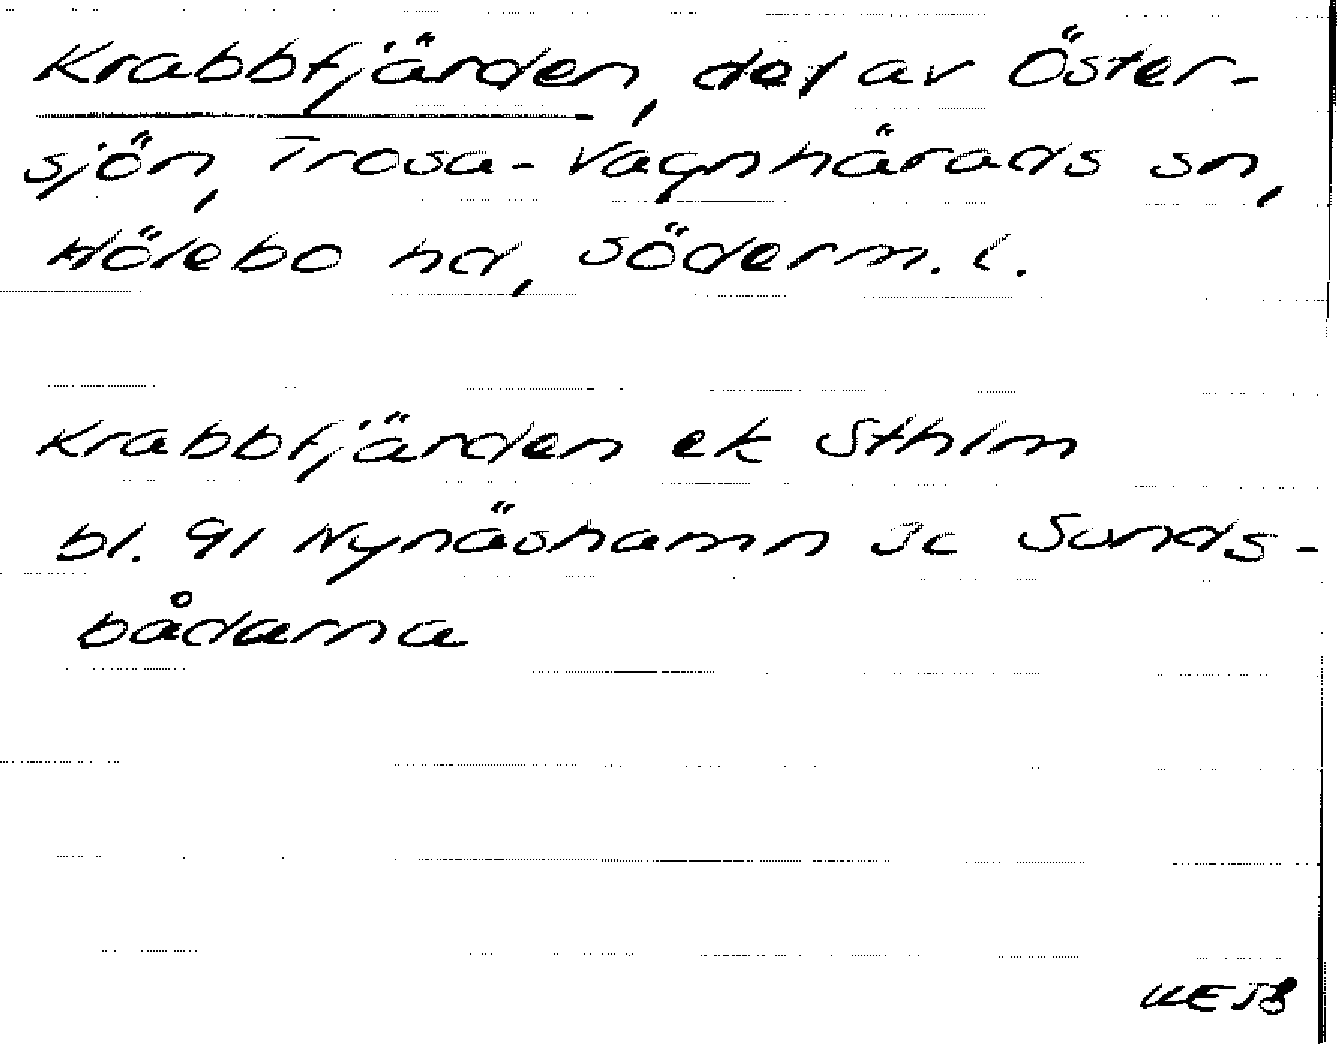 Krabbfjärden, del av Öster-
sjön, Trosa-Vagnhärads sn,
Hölebo hd, Söderm. l.
Krabbfjärden ek Sthlm
bl. 91 Nynäshamn 3c Sunds-
bådarna